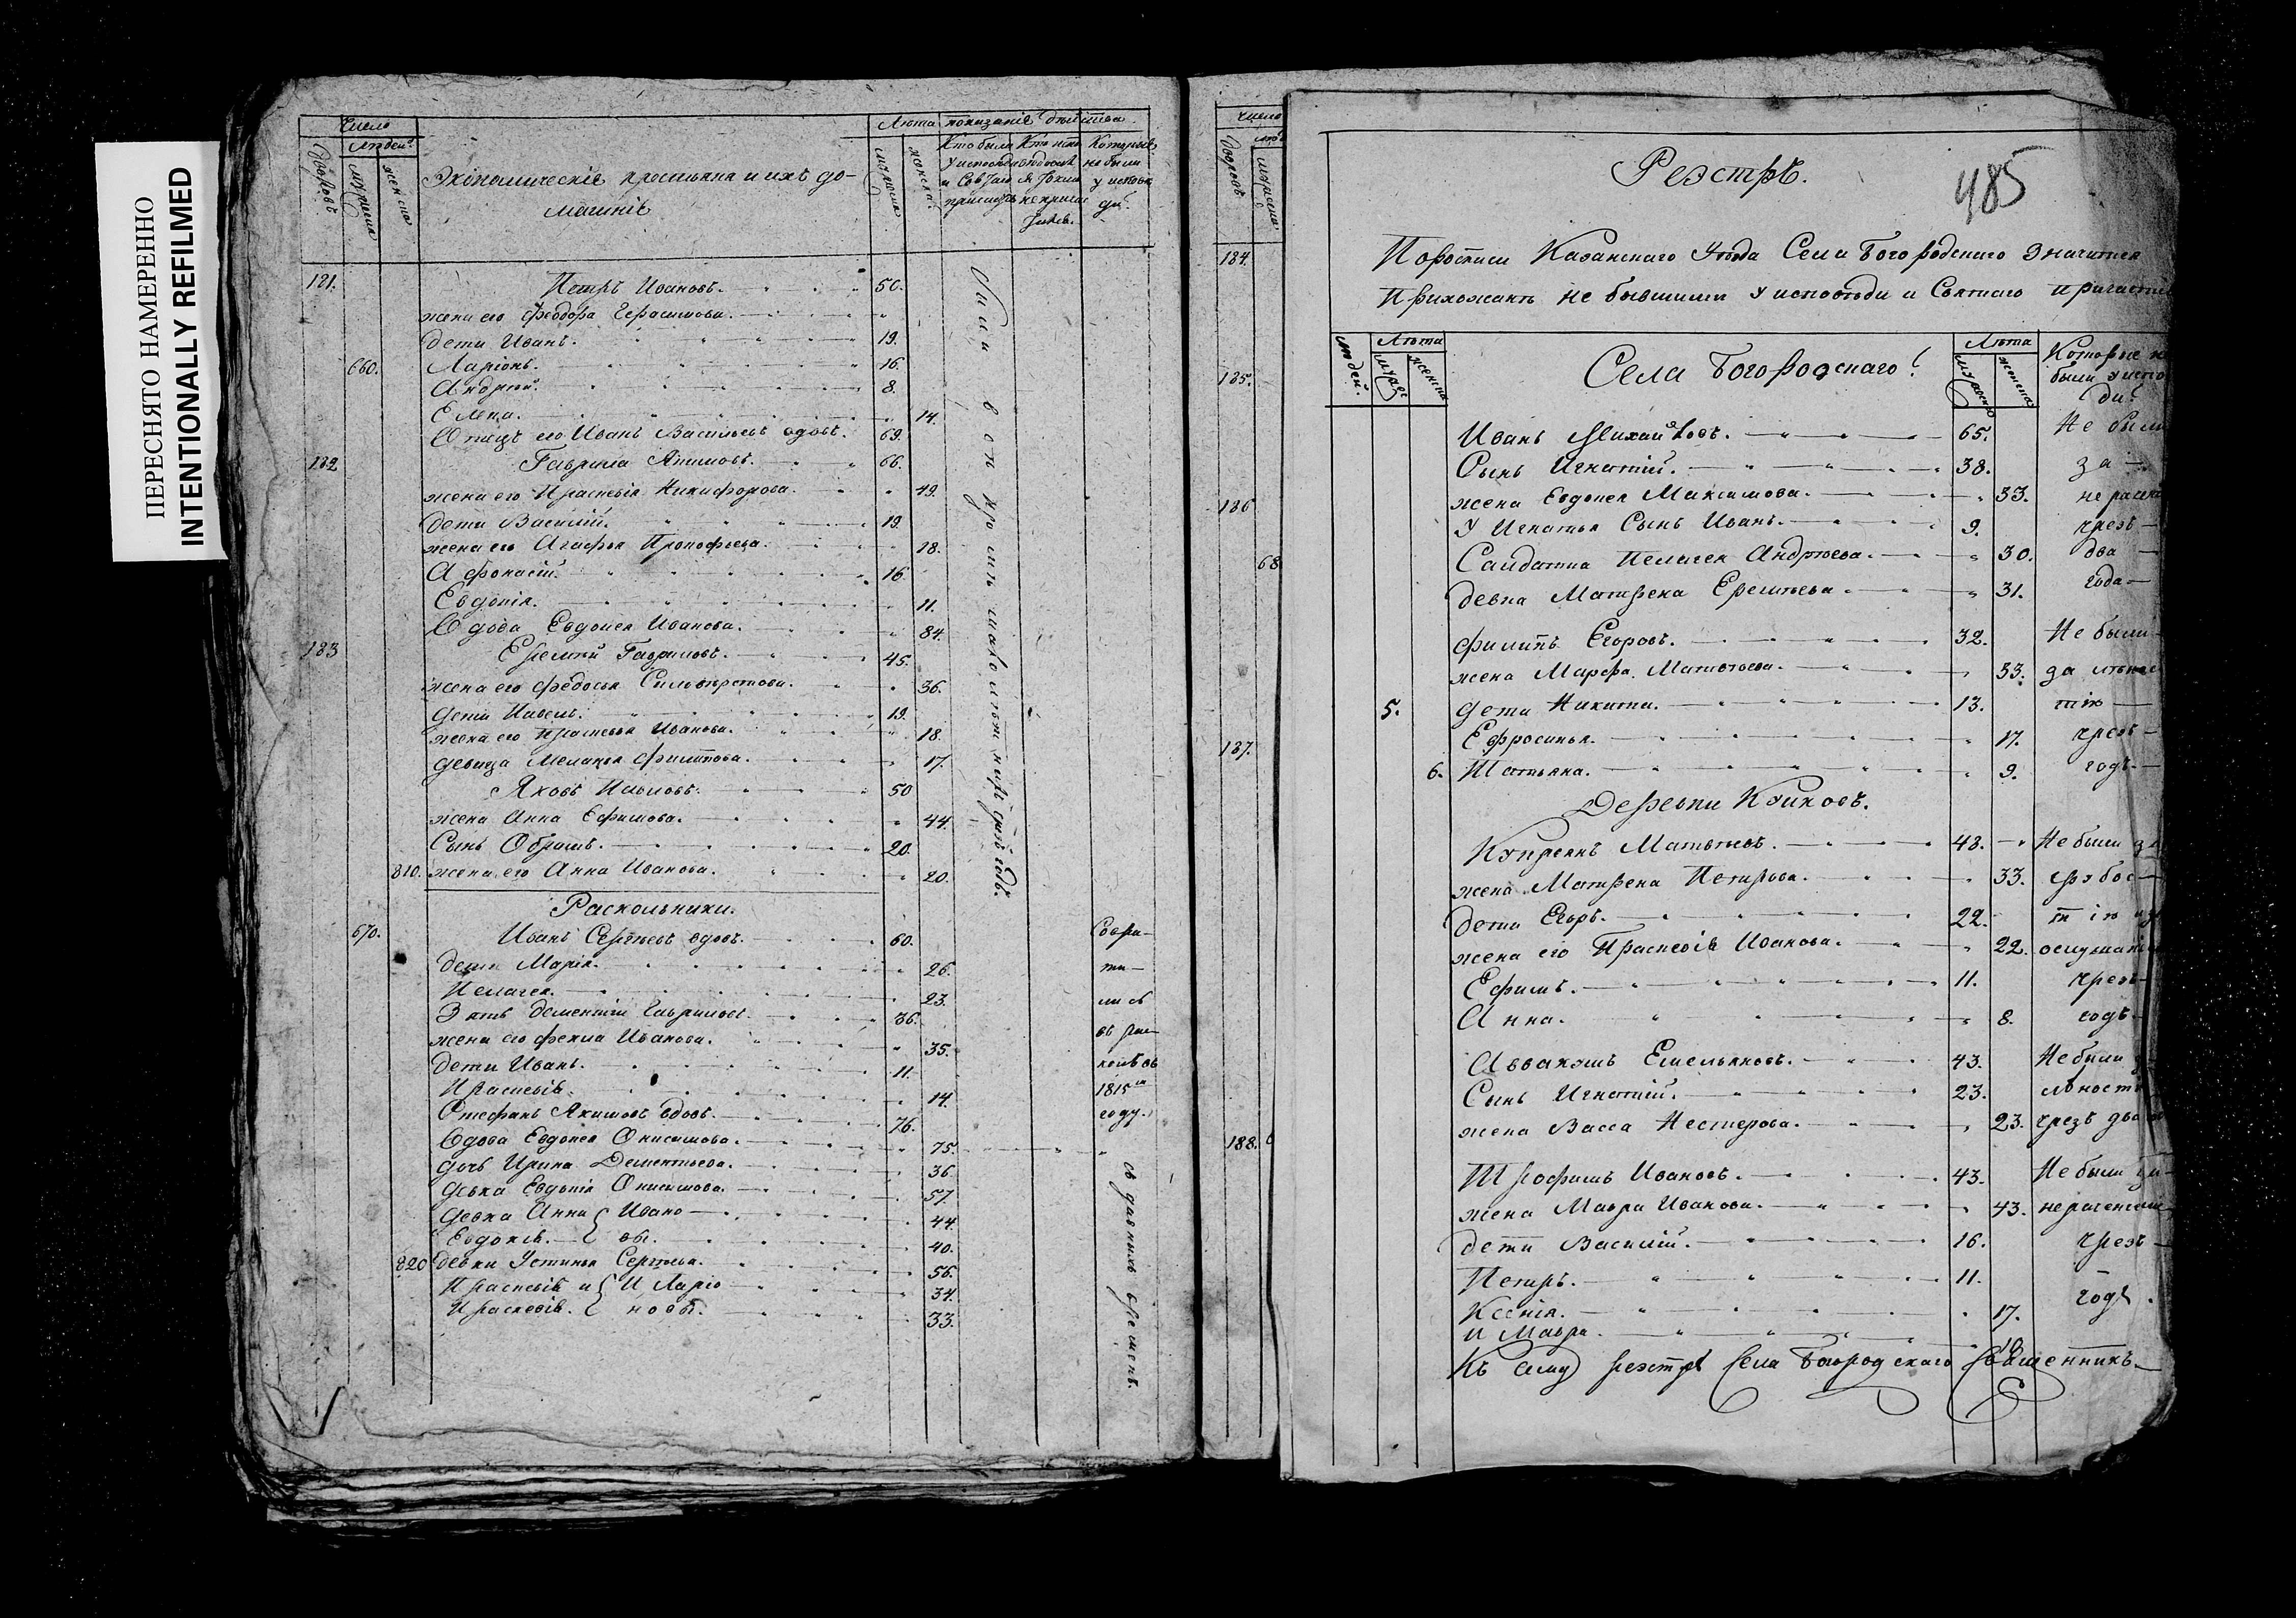 ПЕРЕСНЯТО НАМЕРЕННО
INTENTIONALLY REFILMED
Число
Людей
Дворовъ
мужеска
женска
Экономическія крестьяна и ихъ до-
машніе
Лѣта
мужеска
женска
показаніе
Кто были
Которые
не были
у испове
ди
181. Петръ Ивановъ. 50.
жена его Феодора Герасимова.
дети Иванъ. 19.
660. Ларіонъ. 16.
Андрей. 8.
Елена. 14.
Отецъ его Иванъ Васильевъ вдовъ. 69.
182 Гаврила Якимовъ. 66.
жена его Прасковія Никифорова. 49.
дети Василій. 19.
жена его Агафья Прокофьева. 18.
Афонасій. 16.
Евдокія. 11.
Вдова Евдокея Иванова. 84.
183 Еремѣй Гавриловъ. 45.
жена его Федосья Сильвѣрстова. 36.
дети Павелъ. 19.
жена его Прасковья Иванова. 18.
девица Меланья Филиппова. 17.
Яковъ Павловъ. 50
жена Анна Ефимова. 44.
Сынъ Обрамъ. 20.
810. жена его Анна Иванова. 20.
Раскольники.
670. Иванъ Сергѣевъ вдовъ. 60.
дети Марія. 26.
Пелагея. 23.
Зять Дементій Гавриловъ 36.
жена его Фекла Иванова. 35.
дети Иванъ. 11.
Прасковія. 14.
Стефанъ Якимовъ вдовъ. 76.
Вдова Евдокея Онисимова. 75.
дочь Ирина Дементьева. 36.
девка Евдокія Онисимова. 57.
девка Анна Ивано 44.
Евдокія. вы. 40.
820 девки Устинья Сергѣева. 56.
Прасковія и Иларіо 34.
Прасковія. новы. 33.
Соврати-
лись
въ рас-
колъ въ
1815м
году.
съ давнихъ временъ.
Число
дворовъ
мужеска
184.
185.
186
68
187.
188.
Реэстръ.
485
По росписи Казанскаго Уѣзда Села Богородскаго Значится
Прихожанъ не бывшими у исповѣди и Святаго Причасти
людей.
Лѣта
мужес
женска
Села Богородскаго
Лѣта
мужеска
женска
Которые н
были у испо
ди
Иванъ Михайловъ. 65. Не были
Сынъ Игнатій. 38. за
жена Евдокея Максимова. 33.
У Игнатья Сынъ Иванъ. 9. чрезъ
Салдатка Пелагея Андреева. 30. два
девка Матрена Еремѣева. 31. года
Филипъ Егоровъ. 32. Не были
жена Марфа Матвѣева. 33.
5. дети Никита. 13.
Ефросинья. 17. чрезъ
6. Татьяна. 9. годъ.
Деревни Куюковъ.
Купреянъ Матвѣевъ. 48. Не были
жена Матрена Петрова. 33.
дети Егоръ. 22.
жена его Прасковія Иванова. 22.
Ефимъ. 11. чрезъ
Анна. 8. годъ
Аввакумъ Емельяновъ. 43. Не были
Сынъ Игнатій. 23.
жена Васса Нестерова. 23. чрезъ два
Трофимъ Ивановъ. 43. Не были за
жена Мавра Иванова. 43.
дети Василій. 16. чрезъ
Петръ. 11.
Ксенія. 17. годъ.
и Мавра.
Къ сему реэстру Села Богородскаго Священникъ